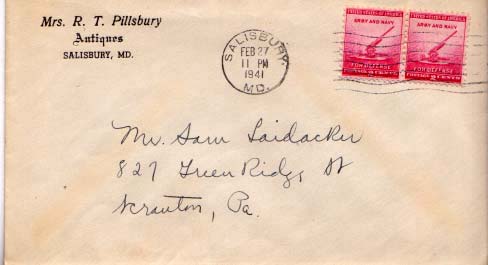 Mrs. R. T. Pillsbury
Antiques
SALISBURY, MD.
SALISBURY.
FEB 27
11 PM
1941
MD.
UNITED STATES OF AMERICA
ARMY AND NAVY
FOR DEFENSE
POSTAGE 2 CENTS
UNITED STATES OF AMERICA
ARMY AND NAVY
FOR DEFENSE
POSTAGE 2 CENTS
Mr. Sam Laidacker
827 Green Ridge St
Scranton, Pa.